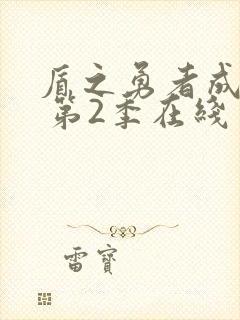 盾之勇者成
第2季在线
雷寶